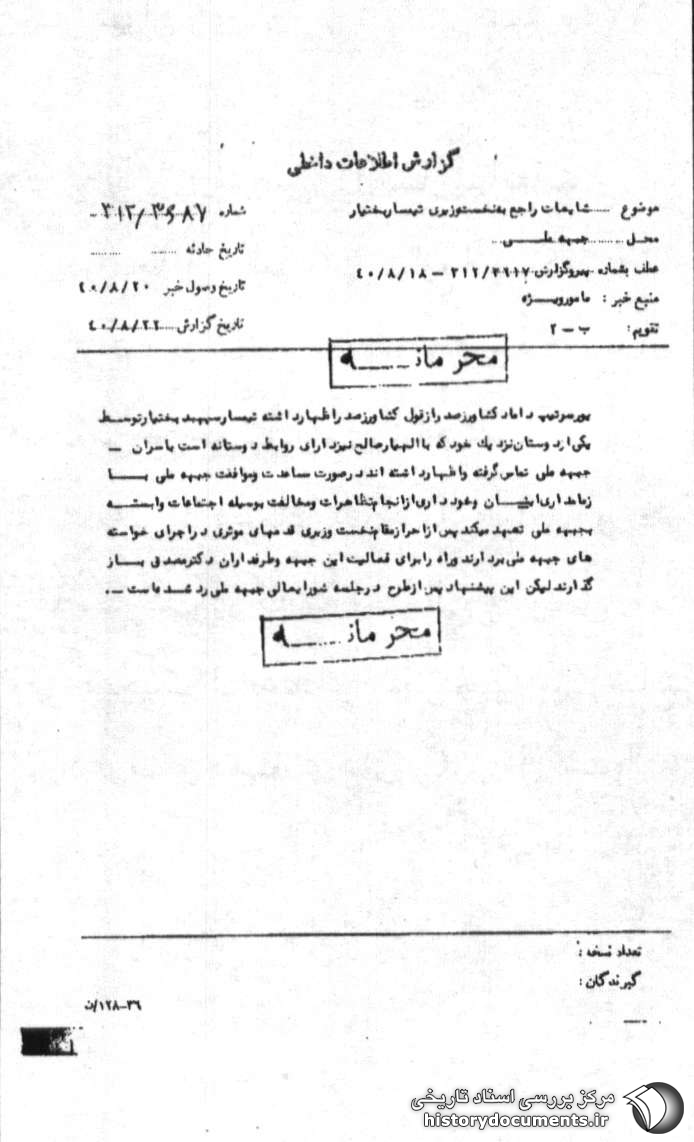 گزارش اطلاعات داخلی
موضوع ...... شایعات راجع به نخست وزیری تیمسار بختیار
شماره ۳۱۲/
محل ......... جبهه ملی ...
تاریخ حادثه ........ ........
عطف بشماره پیروگزارش ۳۱۲ – ۴۰/۸/۱۸
تاریخ وصول خبر ۴۰/۸/۲۰
منبع خبر : مامور ویژه
تاریخ گزارش ..... ۴۰/۸/۲۲
تقویم : ب – ۲
محرمانه
پورسرتیپ داماد کشاورزصدر از قول کشاورزصدر اظهار داشته تیمسار سپهبد بختیار توسط
یکی از دوستان نزدیك خود که با الهیار صالح نیز دارای روابط دوستانه است با سران –
جبهه ملی تماس گرفته و اظهار داشته اند در صورت مساعدت و موافقت جبهه ملی بـــا
زمامداری ایشــان و خودداری از انجام تظاهرات و مخالفت بوسیله اجتماعات وابستــه
بجبهه ملی تعهد میکند پس از احراز مقام نخست وزیری قدمهای موثری در اجرای خواسته
های جبهه ملی بردارند و راه را برای فعالیت این جبهه و طرفداران دکتر مصدق بــاز
گذارند لیکن این پیشنهاد پس از طرح در جلسه شورایعالی جبهه ملی رد شده است .–
محرمانه
تعداد نسخه :
گیرندگان :
۳۶–۱۲۸/ن
مرکز بررسی اسناد تاریخی
historydocuments.ir